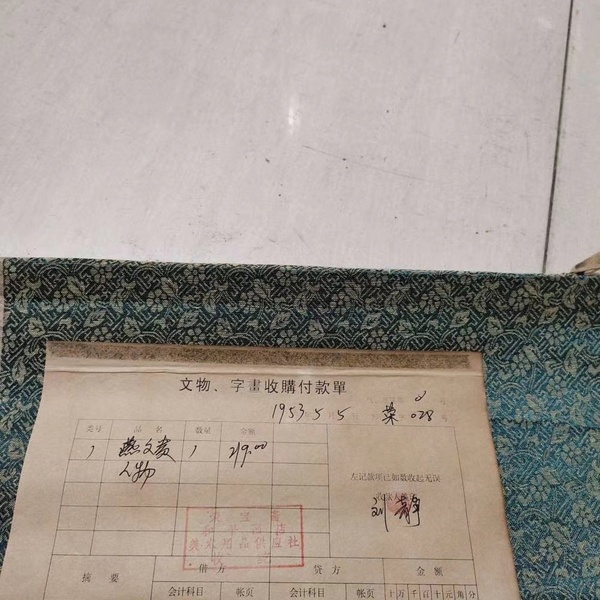 文物、字畫收購付款單
1953 5 5 荣 028 号
类号 品名 数量 金额
1 燕文贵 1 219.00
人物
左记款项已如数收起无误
收款人
刘
美术用品供应社
摘要 借方 贷方 金额
会计科目 帐页 会计科目 帐页 十万千百十元角分